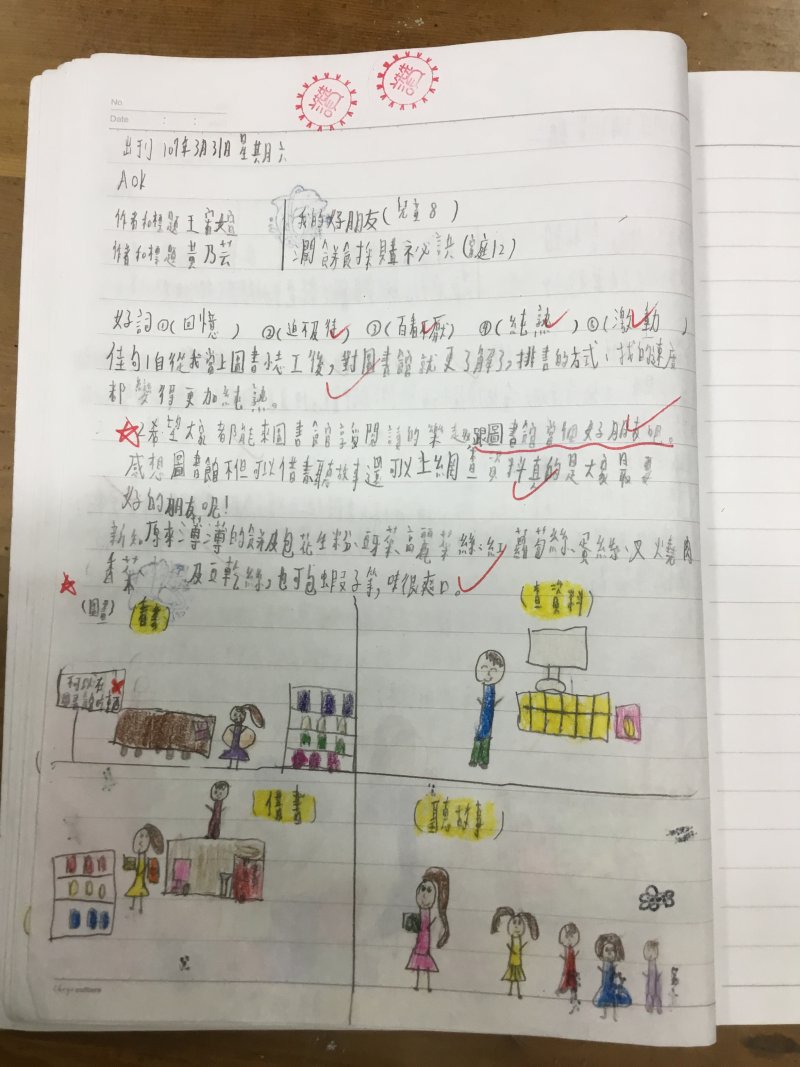 讚
讚
No
Date : :
出刊 107年3月31日 星期六
AOK
作者和標題 王
我的好朋友(兒童8)
作者和標題 黃乃芸
潤餅食採購祕訣(家庭12)
好詞①(回憶) ②(迫不及待) ③(百看不厭) ④(純熟) ⑤(激動)
佳句1自從我當上圖書志工後,對圖書館就更了解了,排書的方式、找的速度
都變得更加純熟。
☆希望大家都能來圖書館享受閱讀的樂趣跟圖書館當個好朋友吧。
感想圖書館不但可以借書聽故事還可以上網查資料真的是大家最要
好的朋友呢!
新知原來薄薄的餅皮包花生粉、豆芽菜、高麗菜絲、紅蘿蔔絲、蛋絲、叉燒肉
香菜及豆乾絲,也可包蝦子等,味很爽口。
(圖畫)
看書
(查資料)
借書
(聽故事)